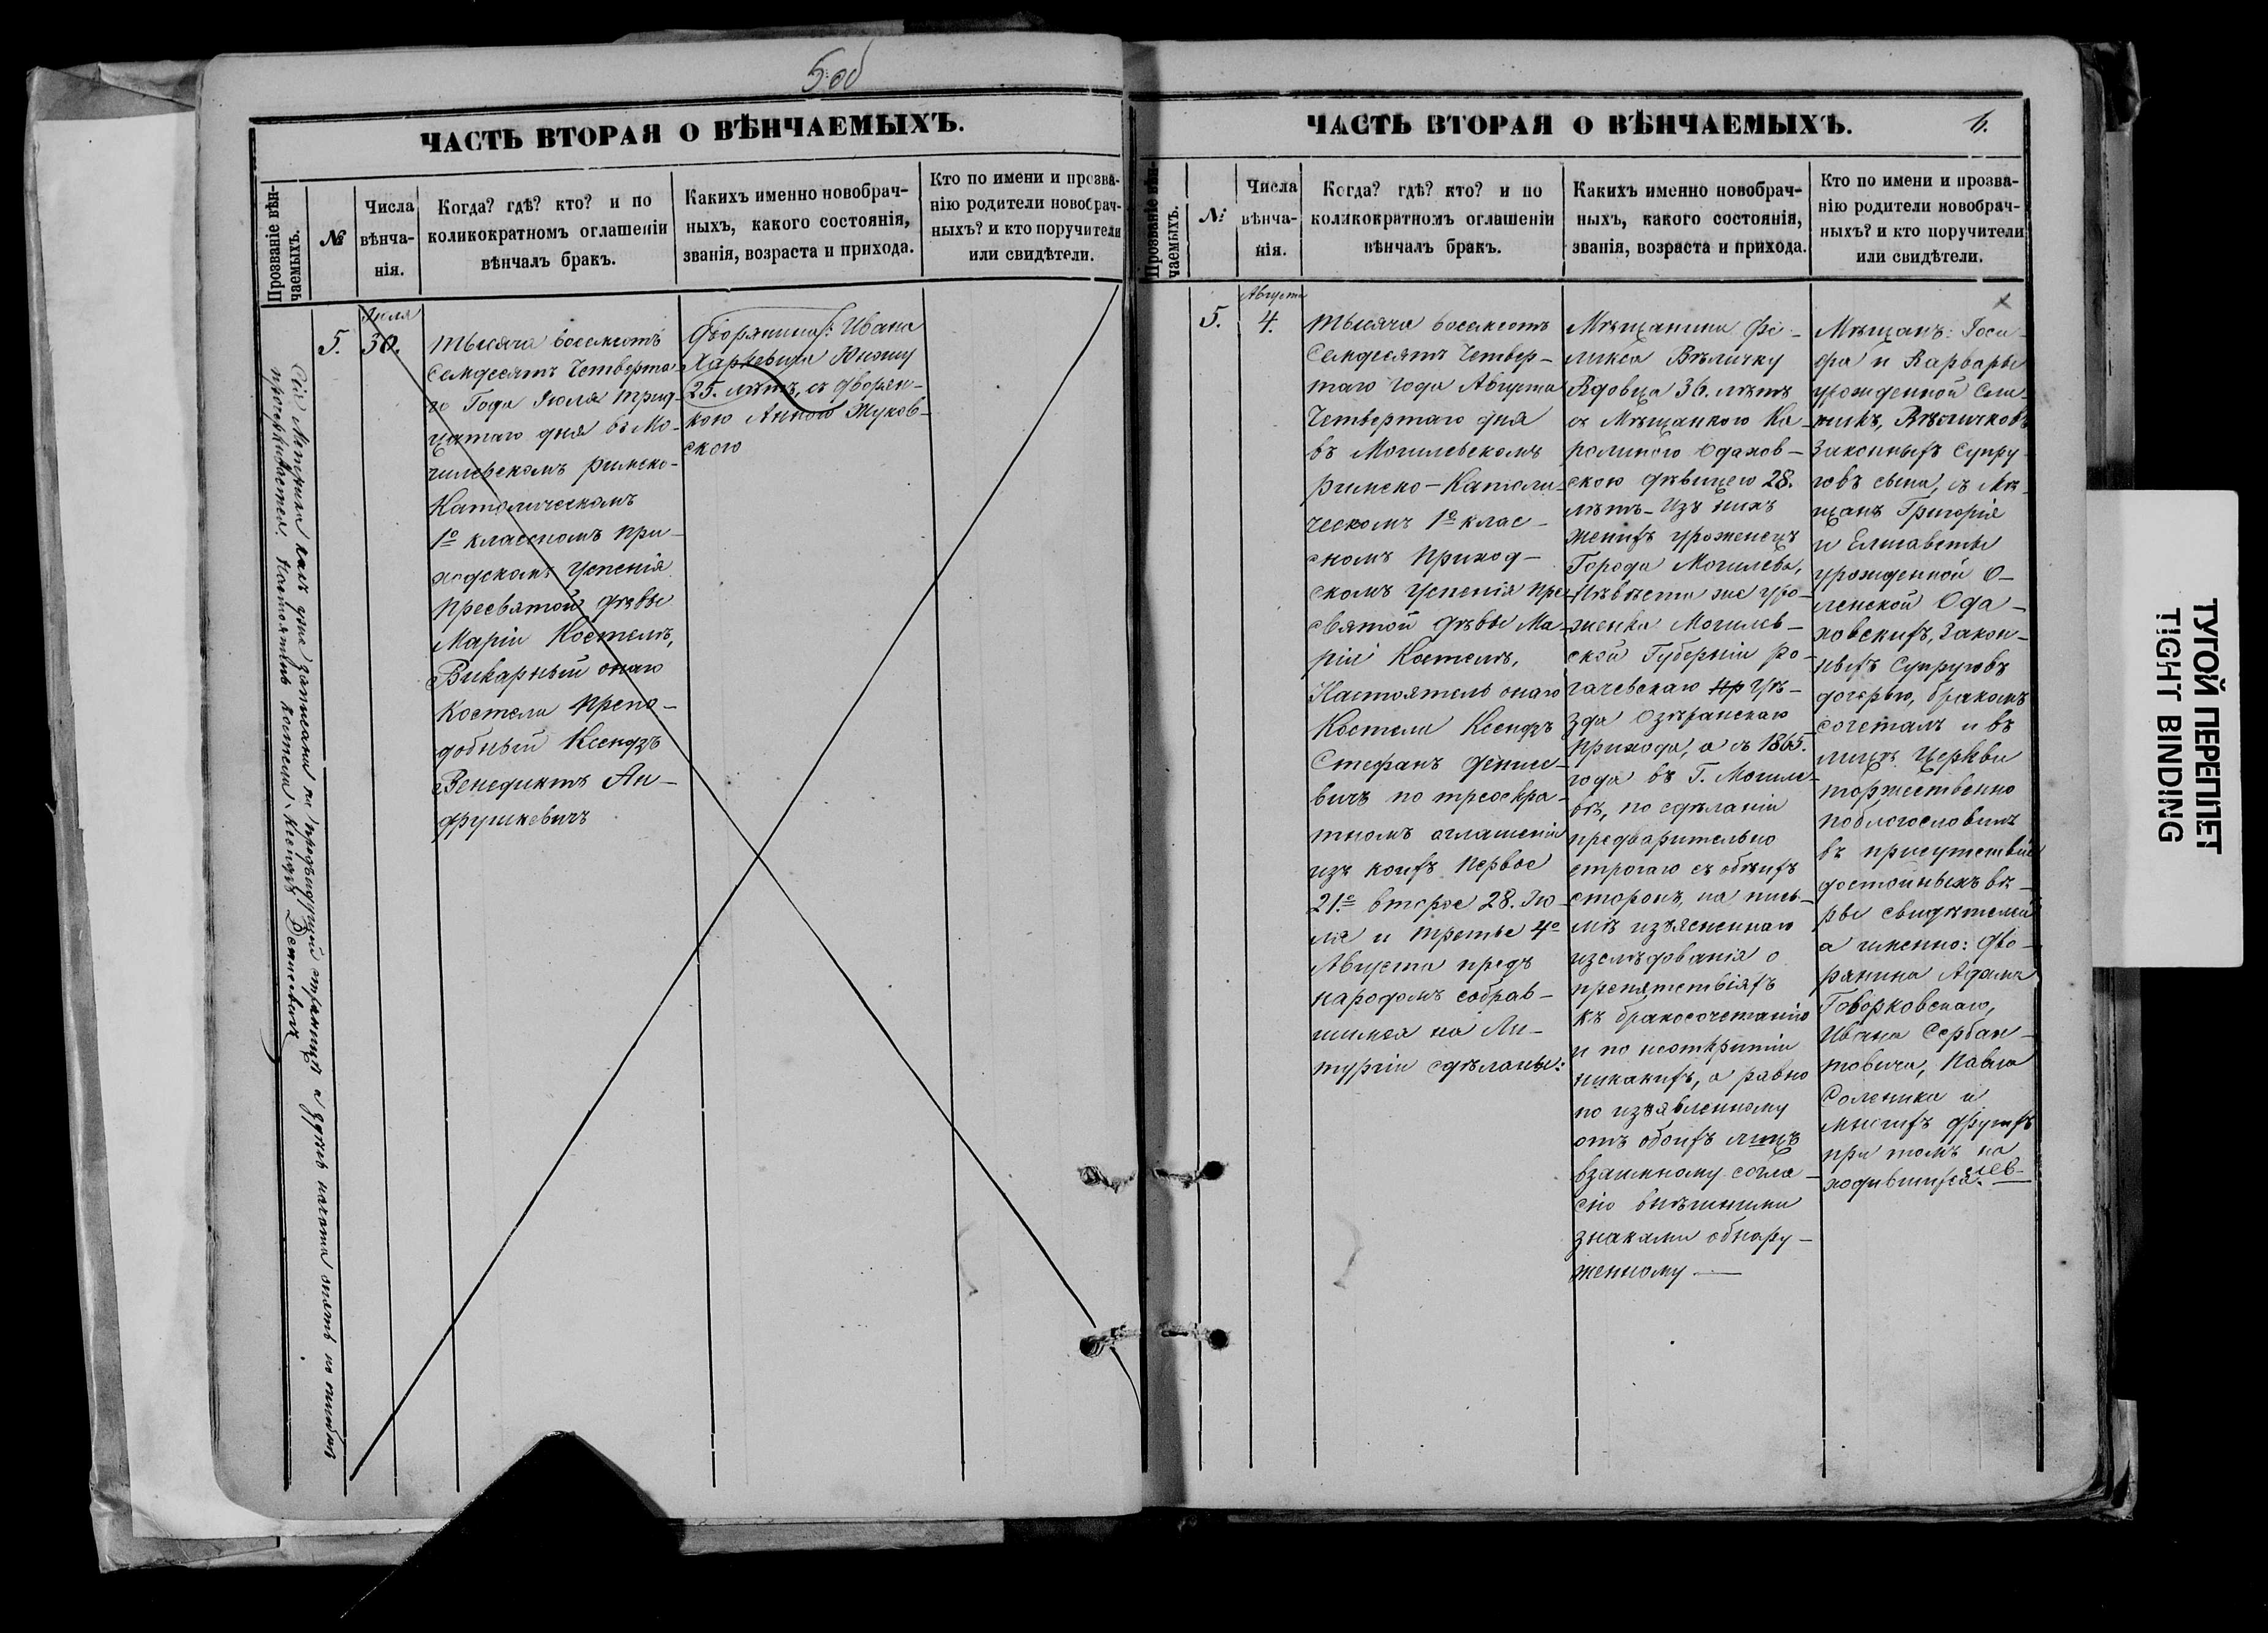 5 об
ЧАСТЬ ВТОРАЯ О ВѢНЧАЕМЫХЪ.
Прозваніе вѣн-
чаемыхъ.
№
Числа
вѣнча-
нія.
Когда? гдѣ? кто? и по
коликократномъ оглашеніи
вѣнчалъ бракъ.
Какихъ именно новобрач-
ныхъ, какого состоянія,
званія, возраста и прихода.
Кто по имени и прозва-
нію родители новобрач-
ныхъ? и кто поручители
или свидѣтели.
Сія Метрика какъ уже записана на предъидущей страницѣ а здѣсь начата опять по ошибкѣ
прочеркивается. Настоятель костела Ксендзъ Денисевичъ
5.
Іюля
30.
Тысяча восемсотъ
Семдесятъ Четверта-
го Года Іюля трид-
цатаго дня въ Мо-
гилевскомъ римско-
Католическомъ
1º классномъ при-
ходскомъ Успенія
Пресвятой Дѣвы
Маріи Костелѣ,
Викарный онаго
Костела Препо-
добный Ксендзъ
Венедиктъ Ан-
друшкевичъ
Дворянина: Ивана
Харкевича Юношу
25. лѣтъ, съ Дворян-
кою Анною Жуков-
скою
ЧАСТЬ ВТОРАЯ О ВѢНЧАЕМЫХЪ.
6.
Прозваніе вѣн-
чаемыхъ.
№
Числа
вѣнча-
нія.
Когда? гдѣ? кто? и по
коликократномъ оглашеніи
вѣнчалъ бракъ.
Какихъ именно новобрач-
ныхъ, какого состоянія,
званія, возраста и прихода.
Кто по имени и прозва-
нію родители новобрач-
ныхъ? и кто поручители
или свидѣтели.
5.
Августа
4.
Тысяча восемсотъ
Семдесятъ Четвер-
таго года Августа
Четвертаго дня
въ Могилевскомъ
римско-Католи-
ческомъ 1º клас-
сномъ Приход-
скомъ Успенія Пре-
святой Дѣвы Ма-
ріи Костелѣ,
Настоятель онаго
Костела Ксендзъ
Стефанъ Денисе-
вичъ по треокра-
тномъ оглашеніи
изъ коихъ Первое
21.º второе 28. Ію-
ля и третье 4º
Августа предъ
народомъ собрав-
шимся на Ли-
тургіи сдѣланы:
Мѣщанина Фе-
ликса Вѣличку
Вдовца 36. лѣтъ
съ Мѣщанкою Ка-
ролиною Одахов-
скою Дѣвицею 28.
лѣтъ- Изъ нихъ
женихъ уроженецъ
Города Могилева,
Невѣста же уро-
женка Могилев-
ской Губерніи Ро-
гачевскаго пр Уѣ-
зда Озеранскаго
прихода, а съ 1865.
года въ Г. Могиле-
вѣ, по сдѣланіи
предварительно
строгаго съ обѣихъ
сторонъ, на пись-
мѣ изъясненнаго
изслѣдованія о
препятствіяхъ
къ бракосочетанію
и по неоткрытіи
никакихъ, а равно
по изъявленному
отъ обоихъ лицъ
взаимному согла-
сію внѣшними
знаками обнару-
женному.
Мѣщанъ: Іоси-
фа и Варвары
урожденной Соло-
Вѣличковъ
Законныхъ Супру-
говъ сына, съ Мѣ-
щанъ Григорія
и Елисаветы
урожденной О-
ленской Ода-
ховскихъ, Закон-
ныхъ Супруговъ
дочерью, бракомъ
сочеталъ и въ
лицѣ Церкви
торжественно
поблагословилъ
въ присутствіи
достойныхъ вѣ-
ры свидѣтелей
а именно: Дво-
рянина Адама
Говорковскаго,
Ивана Сербан-
товича, Павла
Соленика и
многихъ другихъ
при томъ на
ходившихся.
ТУГОЙ ПЕРЕПЛЕТ
TIGHT BINDING